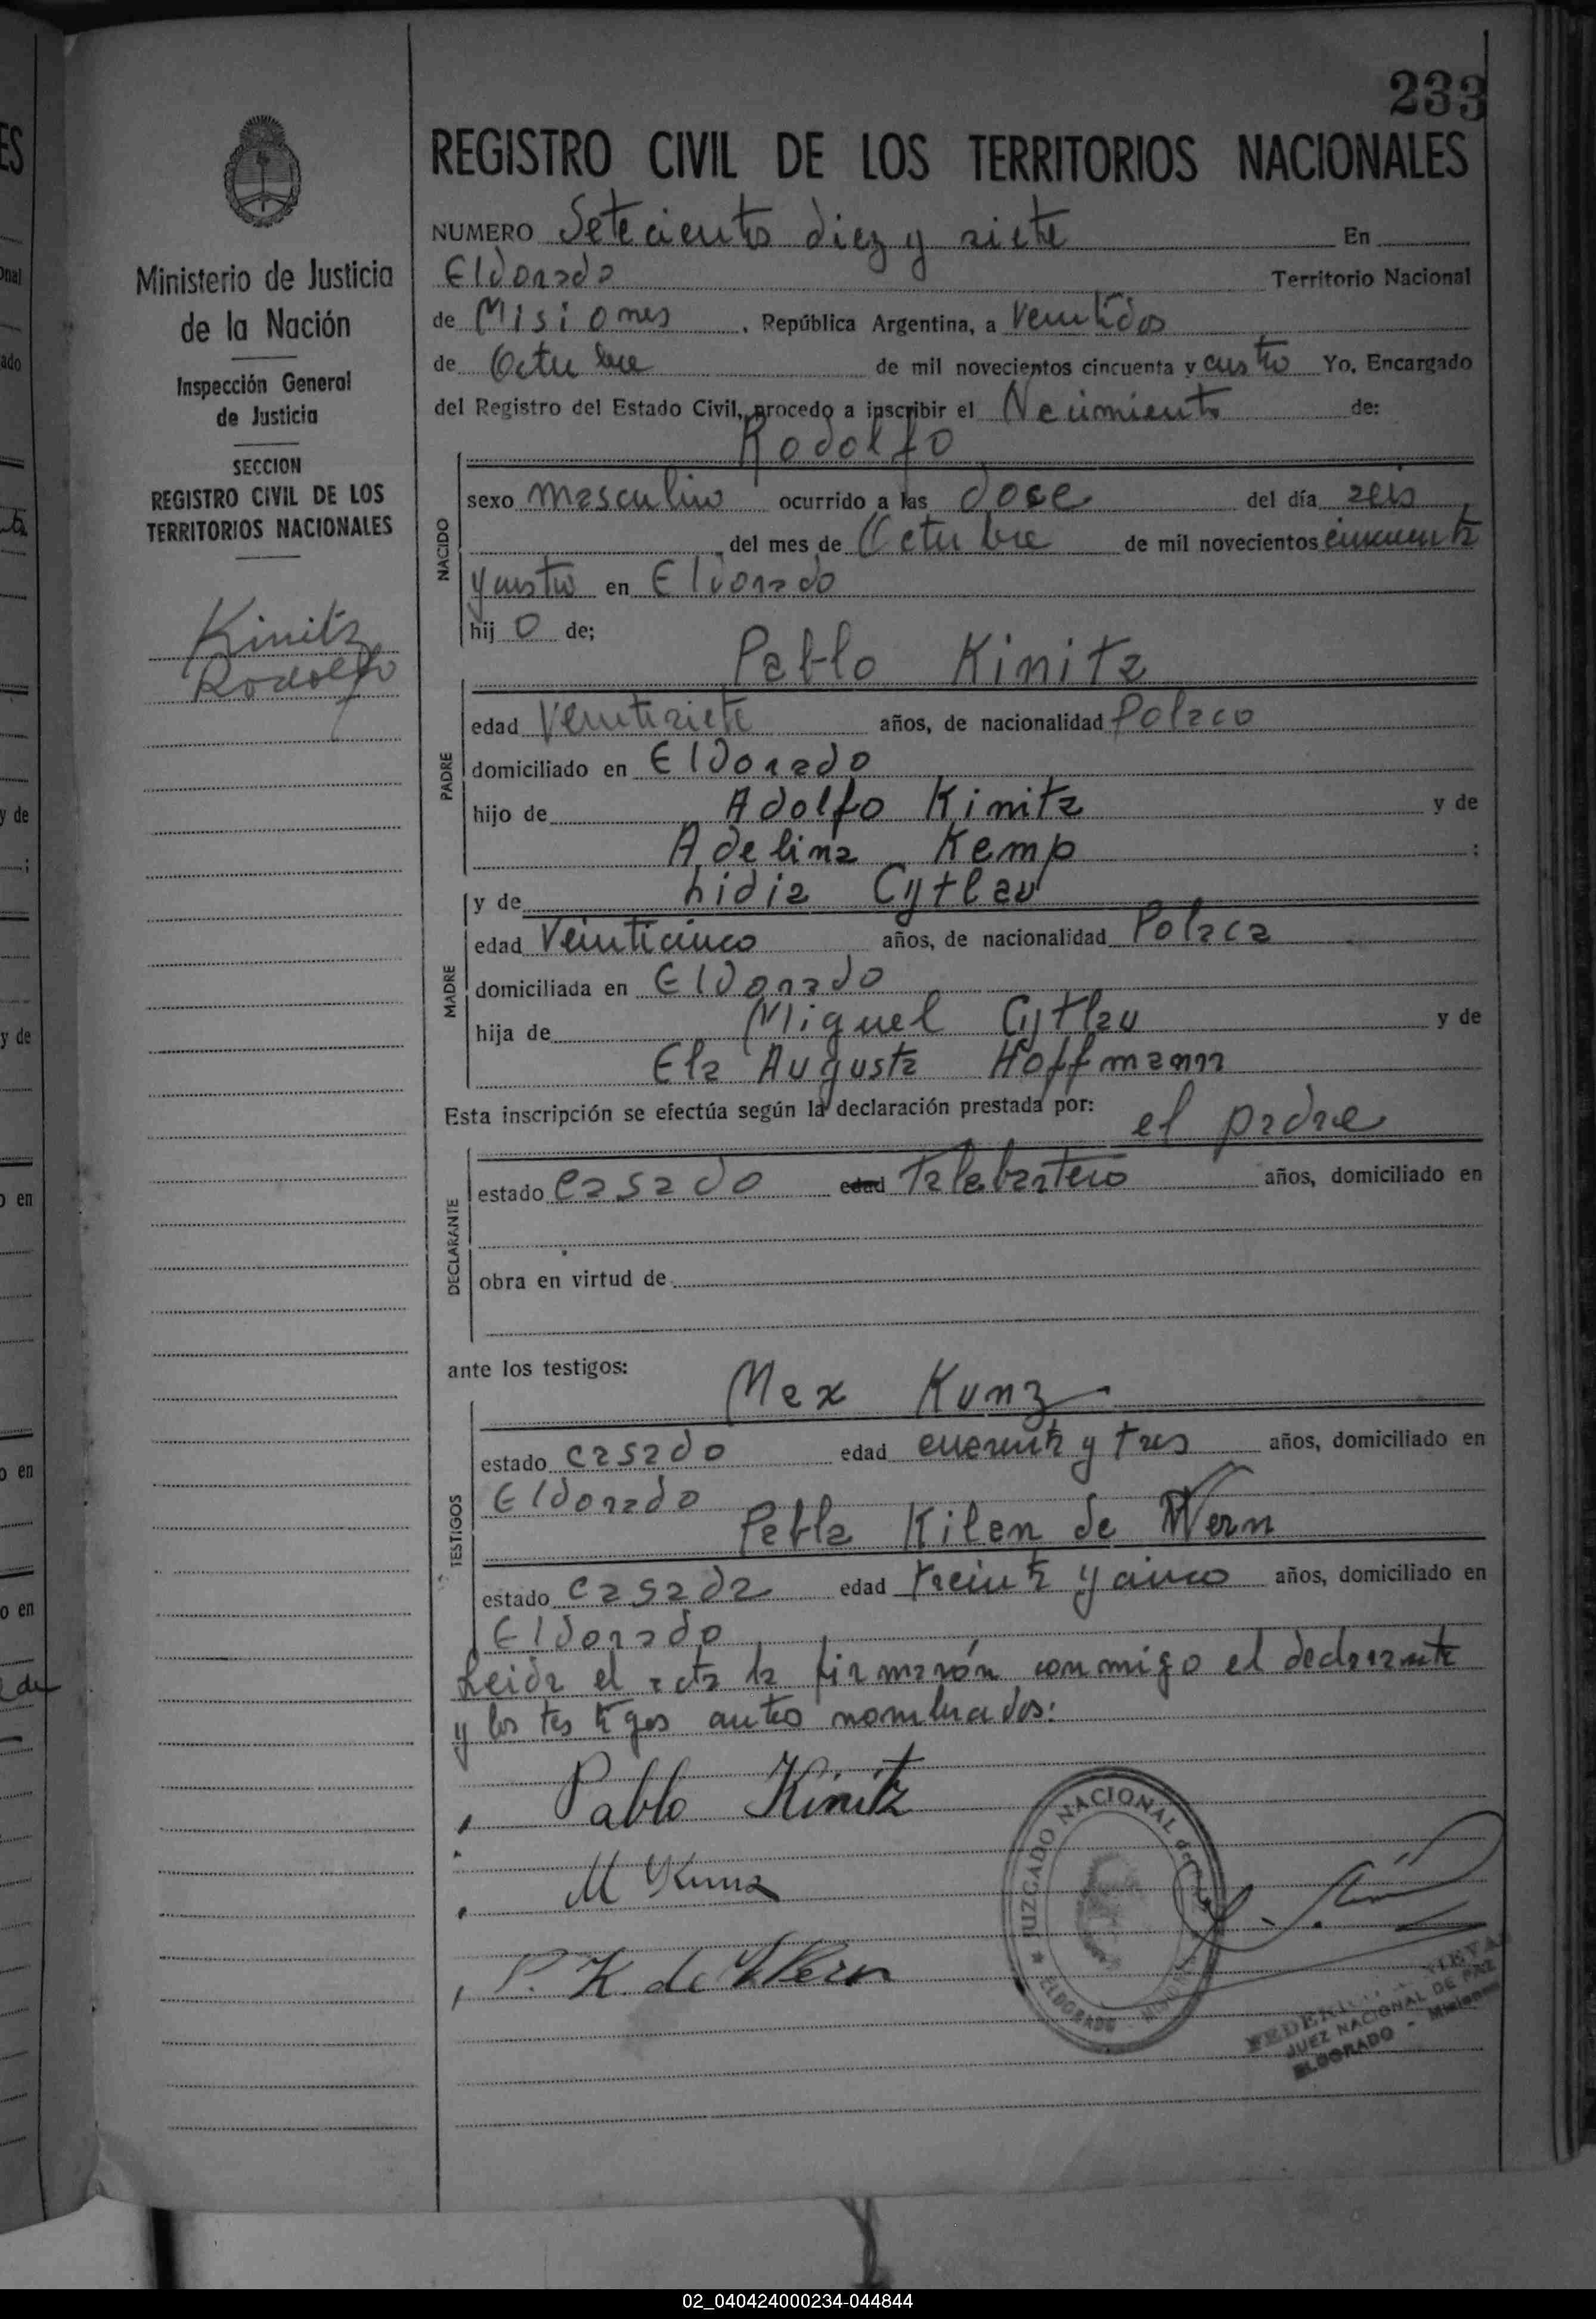 233
REGISTRO CIVIL DE LOS TERRITORIOS NACIONALES
Ministerio de Justicia
de la Nación
Inspección General
de Justicia
SECCION
REGISTRO CIVIL DE LOS
TERRITORIOS NACIONALES
Kinitz
Rodolfo
NUMERO Setecientos diez y siete En
Eldorado Territorio Nacional
de Misiones, República Argentina, a veintidos
de Octubre de mil novecientos cincuenta y cuatro Yo, Encargado
del Registro del Estado Civil, procedo a inscribir el Nacimiento de:
Rodolfo
NACIDO
sexo masculino ocurrido a las doce del día seis
del mes de Octubre de mil novecientos cincuenta
y cuatro en Eldorado
hijo de;
Pablo Kinitz
PADRE
edad Veintisiete años, de nacionalidad Polaco
domiciliado en Eldorado
hijo de Adolfo Kinitz y de
Adelina Kemp ;
y de Lidia Cytlau
MADRE
edad Veinticinco años, de nacionalidad Polaca
domiciliada en Eldorado
hija de Miguel Cytlau y de
Ela Augusta Hoffmann
Esta inscripción se efectúa según la declaración prestada por: el padre
DECLARANTE
estado casado edad Talabartero años, domiciliado en
obra en virtud de
ante los testigos:
Max Kunz
TESTIGOS
estado casado edad cuarenta y tres años, domiciliado en
Eldorado
Pabla Kilen de Wern
estado casada edad treinta y cinco años, domiciliado en
Eldorado
Leida el acta la firmarón conmigo el declarante
y los testigos antes nombrados:
Pablo Kinitz
M Kunz
P. K. de Wern
JUZGADO NACIONAL de
ELDORADO
JUEZ NACIONAL DE PAZ
ELDORADO - Misiones
02_040424000234-044844